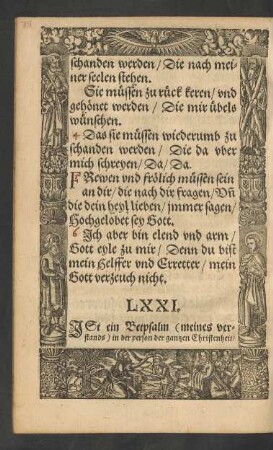 schanden werden/ Die nach mei-
ner seelen stehen.
Sie müssen zu rück keren/ vnd
gehönet werden/ Die mir übels
wünschen.
4 Das sie müssen wiederumb zu
schanden werden/ Die da vber
mich schreyen/ Da/ Da.
FRewen vnd frölich müssen sein
an dir/ die nach dir fragen/ Vñ
die dein heyl lieben/ jmmer sagen/
Hochgelobet sey Gott.
6 Ich aber bin elend vnd arm/
Gott eyle zu mir/ Denn du bist
mein Helffer vnd Erretter/ mein
Gott verzeuch nicht.
LXXI.
ISt ein Betpsalm (meines ver-
stands) in der person der gantzen Christenheit/